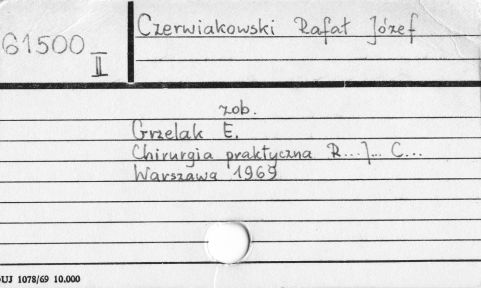 Czerwiakowski Rafał Józef
61500
II
zob.
Grzelak E.
Chirurgia praktyczna R...J... C...
Warszawa 1969
UJ 1078/69 10.000